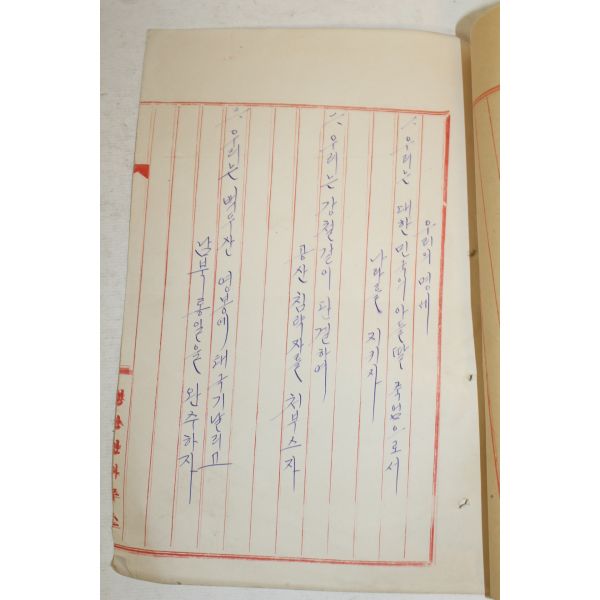 우리의 명세
우리는 대한민국의 아들딸 죽엄으로서
나라를 지키자
우리는 강철같이 단결하여
공산 침략자를 처부스자
우리는 백두산 영봉에 태극기날리고
남북 통일을 완수하자